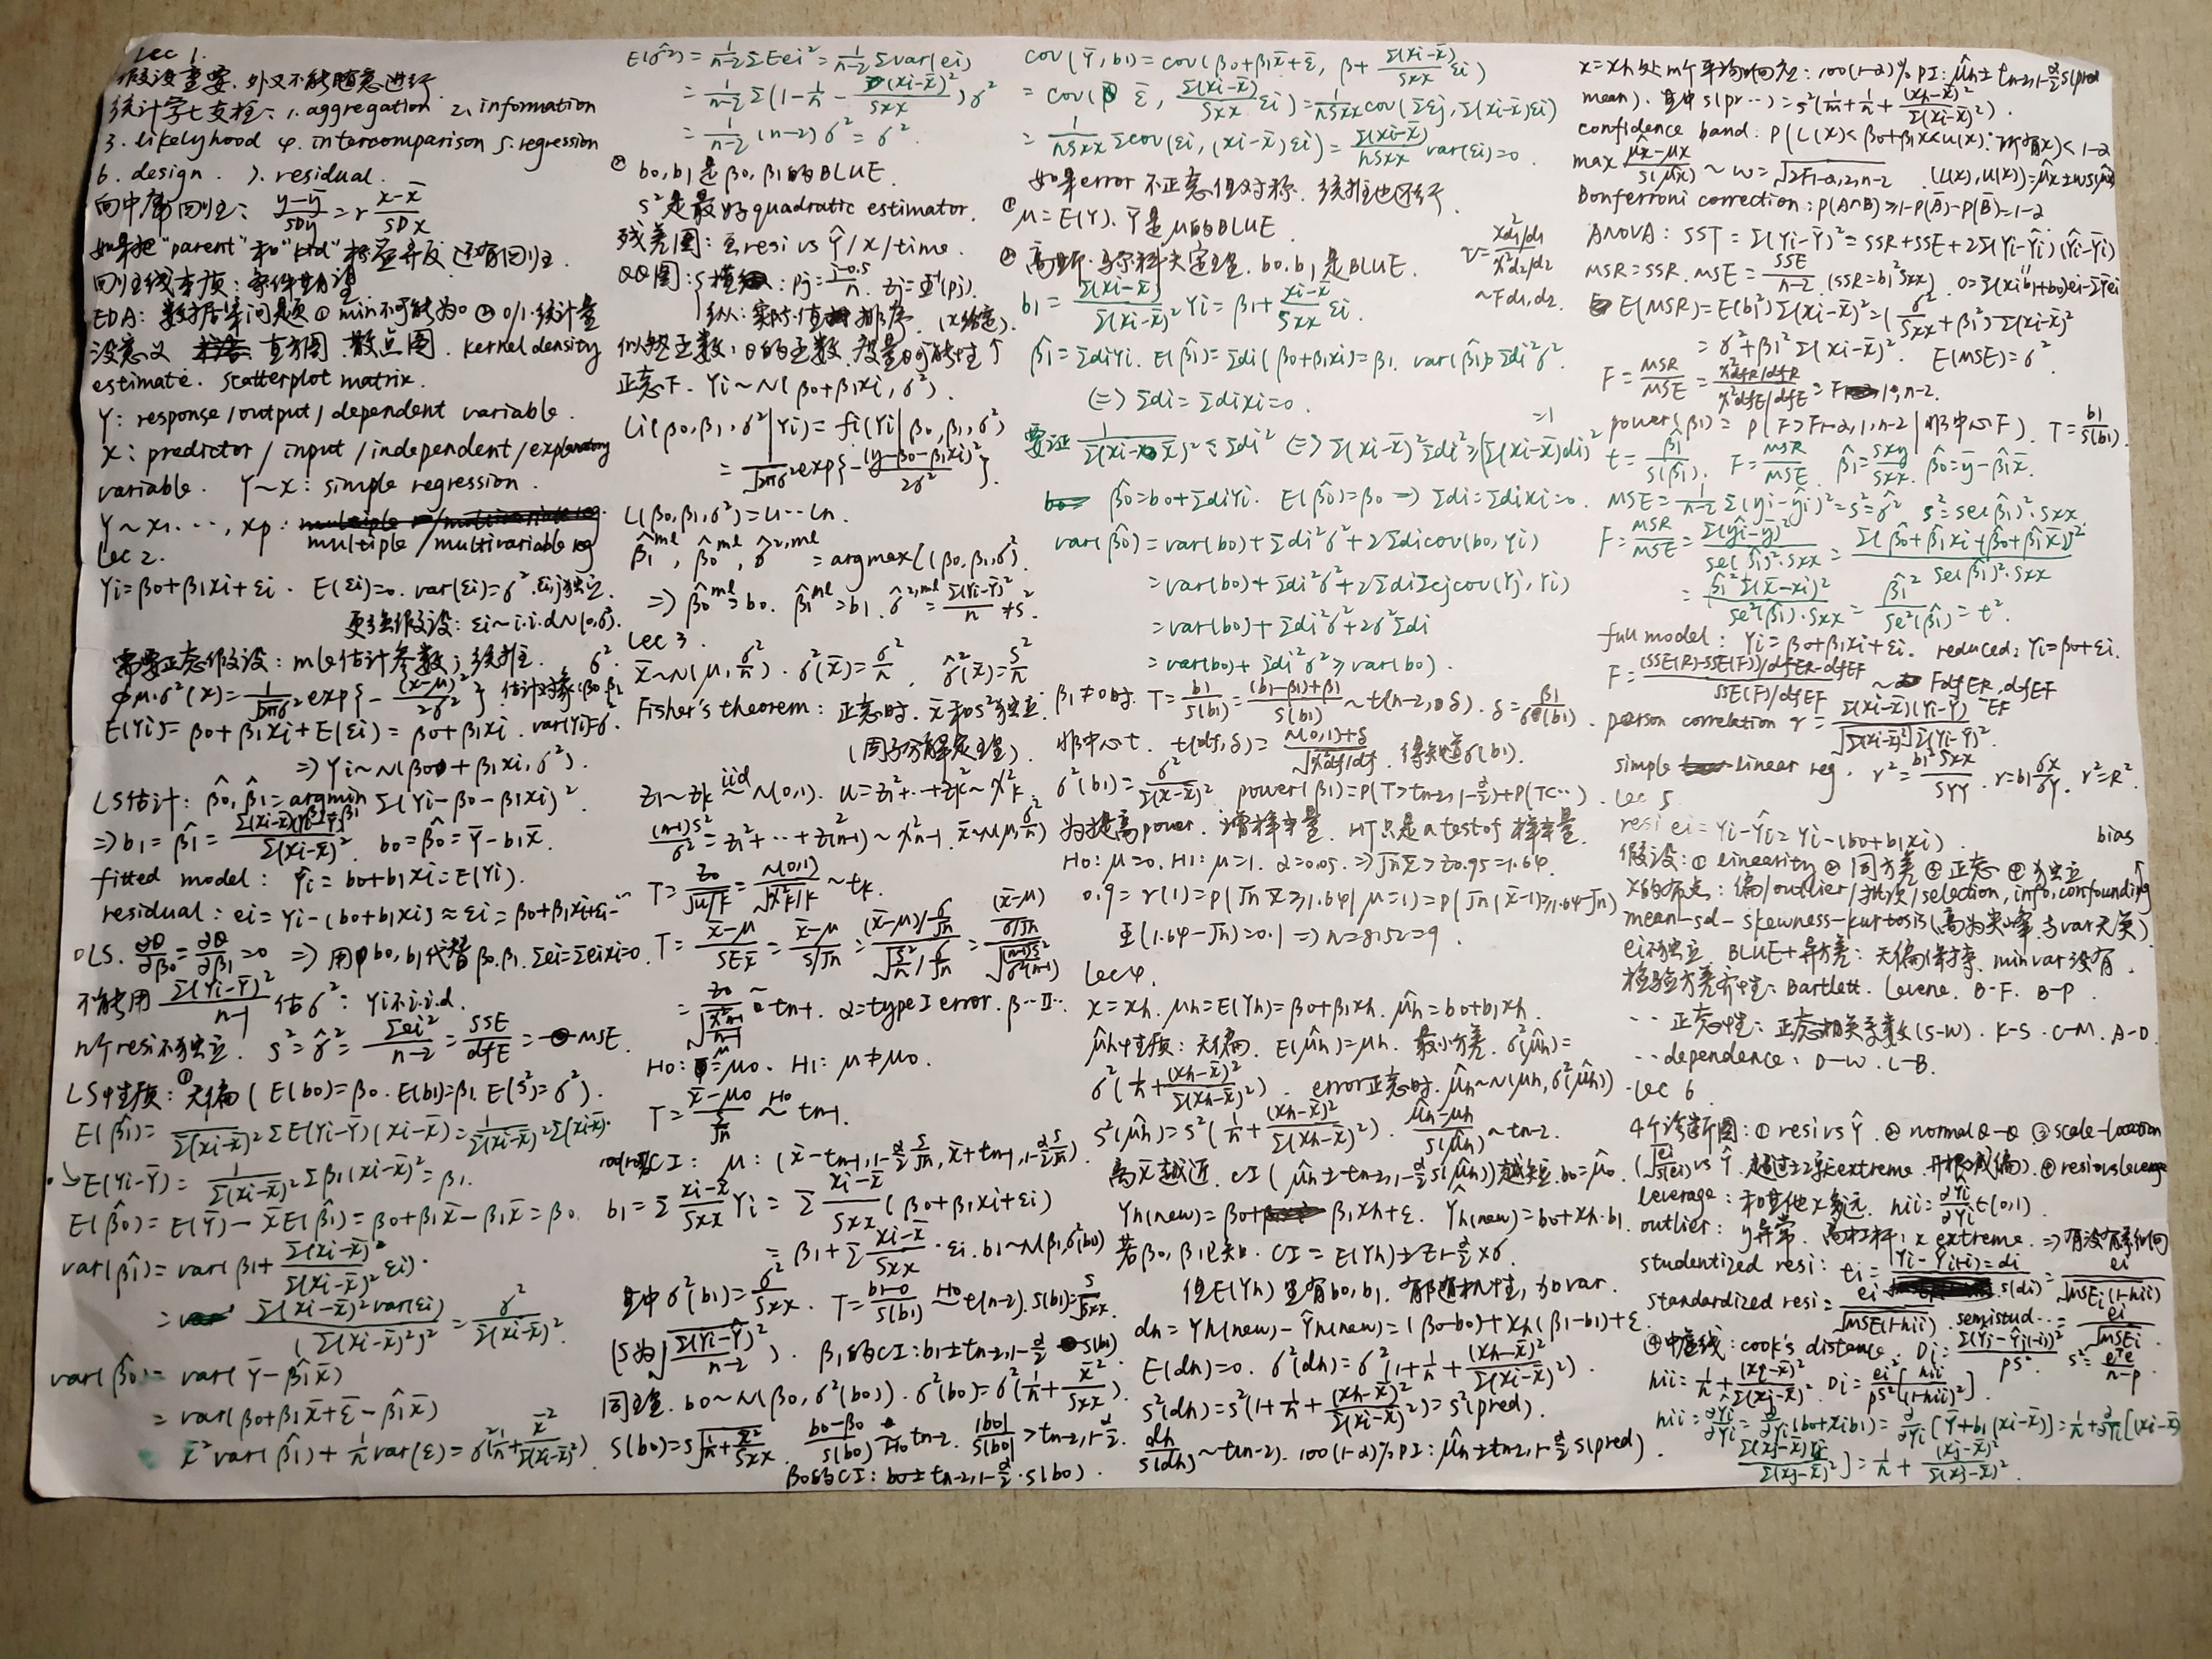 Lec 1.
假设重要.外又不能随意进行
统计学七支柱: 1. aggregation 2. information
3. likelyhood 4. intercomparison 5. regression
6. design. 7. residual.
向中庸回归: (y-ȳ)/SDy = r (x-x̄)/SDx
如果把"parent"和"kid"标签弄反 还有回归.
回归线本质: 条件期望
EDA: 数据集问题 ① min不可能为0 ② 0/1.统计量
没意义 直方图.散点图. kernel density
estimate. scatterplot matrix.
Y: response/output/dependent variable.
X: predictor/input/independent/explanatory
variable. Y~X: simple regression.
Y~X1,...,Xp:
multiple/multivariable reg
Lec 2.
Yi=β0+β1xi+εi. E(εi)=0. var(εi)=σ². εi,j独立.
更强假设: εi~i.i.d N(0,σ²).
需要正态假设: mle估计参数; 统推.
φμ,σ²(x)=1/√2πσ² exp{-(x-μ)²/2σ²}. 估计对象(β0,β1,σ²
E(Yi)=β0+β1xi+E(εi)=β0+β1xi. var(Yi)=σ².
⇒Yi~N(β0+β1xi,σ²).
LS估计: β̂0,β̂1=argmin Σ(Yi-β0-β1xi)²
⇒b1=β̂1=Σ(xi-x̄)(Yi-Ȳ)/Σ(xi-x̄)². b0=β̂0=Ȳ-b1x̄.
fitted model: Ŷi=b0+b1xi=Ê(Yi).
residual: ei=Yi-(b0+b1xi)≈εi=β0+β1xi+εi-...
OLS. ∂Q/∂β0=∂Q/∂β1=0 ⇒用b0,b1代替β0,β1. Σei=Σeixi=0.
不能用 Σ(Yi-Ȳ)²/(n-1) 估σ²: Yi不i.i.d.
n个resi不独立. s²=σ̂²=Σei²/(n-2)=SSE/dfE=MSE.
LS性质: ①无偏(E(b0)=β0. E(b1)=β1. E(s²)=σ²).
E(β̂1)=1/Σ(xi-x̄)² ΣE(Yi-Ȳ)(xi-x̄)=1/Σ(xi-x̄)² Σ(xi-x̄).
E(Yi-Ȳ)=1/Σ(xi-x̄)² Σβ1(xi-x̄)²=β1.
E(β̂0)=E(Ȳ)-x̄E(β̂1)=β0+β1x̄-β1x̄=β0.
var(β̂1)=var(β1+Σ(xi-x̄)/Σ(xi-x̄)² εi).
=Σ(xi-x̄)²var(εi)/(Σ(xi-x̄)²)²=σ²/Σ(xi-x̄)².
var(β̂0)=var(Ȳ-β̂1x̄)
=var(β0+β1x̄+ε̄-β̂1x̄)
x̄²var(β̂1)+1/n var(ε)=σ²(1/n+x̄²/Σ(xi-x̄)²).
E(σ̂²)=1/(n-2) ΣEei²=1/(n-2) Σvar(ei)
=1/(n-2) Σ(1-1/n-(xi-x̄)²/Sxx)σ²
=1/(n-2) (n-2)σ²=σ².
② b0,b1是β0,β1的BLUE.
s²是最好quadratic estimator.
残差图: 画resi vs Ŷ/x/time.
QQ图: 横: pj=(j-0.5)/n. zj=Φ⁻¹(pj).
纵: 实际值排序. (x给定).
似然函数: θ的函数.度量θ可能性↑
正态下. Yi~N(β0+β1xi,σ²).
Li(β0,β1,σ²|Yi)=fi(Yi|β0,β1,σ²)
=1/√2πσ² exp{-(y-β0-β1xi)²/2σ²}.
L(β0,β1,σ²)=L1...Ln.
β̂1ml,β̂0ml,σ̂²,ml=argmaxL(β0,β1,σ²).
⇒β̂0ml=b0. β̂1ml=b1. σ̂²,ml=Σ(Yi-Ŷi)²/n≠s².
Lec 3.
x̄~N(μ,σ²/n). σ²(x̄)=σ²/n. σ̂²(x̄)=s²/n
Fisher's theorem: 正态时.x̄和s²独立.
(因子分解定理).
z1~zk iid~N(0,1). u=z1²+...+zk²~χ²k.
(n-1)s²/σ²=z1²+...+z(n-1)²~χ²n-1. x̄~N(μ,σ²/n)
T=z0/√u/k=N(0,1)/√χ²k/k~tk.
T=(x̄-μ)/SEx̄=(x̄-μ)/(s/√n)=((x̄-μ)/(σ/√n))/(√s²/n/(σ/√n))=((x̄-μ)/(σ/√n))/√((n-1)s²/σ²(n-1))
=z0/√(χ²n-1/(n-1))~tn-1. α=type I error. β...II...
H0: μ=μ0. H1: μ≠μ0.
T=(x̄-μ0)/(s/√n) H0~ tn-1.
CI: μ: (x̄-tn-1,1-α/2 s/√n, x̄+tn-1,1-α/2 s/√n).
b1=Σ(xi-x̄)/Sxx Yi=Σ(xi-x̄)/Sxx (β0+β1xi+εi)
=β1+Σ(xi-x̄)/Sxx·εi. b1~N(β1,σ²(b1))
其中σ²(b1)=σ²/Sxx. T=(b1-0)/s(b1) H0~t(n-2). s(b1)=s/√Sxx.
(s为√Σ(Yi-Ŷ)²/(n-2)). β1的CI: b1±tn-2,1-α/2 s(b1)
同理. b0~N(β0,σ²(b0)). σ²(b0)=σ²(1/n+x̄²/Sxx).
s(b0)=s√1/n+x̄²/Sxx. (b0-β0)/s(b0) H0~ tn-2. |b0|/s(b0)>tn-2,1-α/2.
β0的CI: b0±tn-2,1-α/2·s(b0).
cov(Ȳ,b1)=cov(β0+β1x̄+ε̄, β+Σ(xi-x̄)/Sxx εi)
=cov(ε̄, Σ(xi-x̄)/Sxx εi)=1/nSxx cov(Σεj,Σ(xi-x̄)εi)
=1/nSxx Σcov(εi,(xi-x̄)εi)=Σ(xi-x̄)/nSxx var(εi)=0.
如果error不正态但对称.统推也还行.
① μ=E(Y). Ȳ是μ的BLUE
② 高斯-马尔科夫定理. b0.b1是BLUE.
r=(χ²d1/d1)/(χ²d2/d2)
~Fd1,d2.
b1=Σ(xi-x̄)/Σ(xi-x̄)² Yi=β1+(xi-x̄)/Sxx εi.
β̂1=ΣdiYi. E(β̂1)=Σdi(β0+β1xi)=β1. var(β̂1)=Σdi²σ².
(⇒Σdi=Σdixi=0.
要证 1/Σ(xi-x̄)²≤Σdi² ⇔Σ(xi-x̄)²Σdi²≥[Σ(xi-x̄)di]² =1
β̂0=b0+ΣdiYi. E(β̂0)=β0⇒Σdi=Σdixi=0.
var(β̂0)=var(b0)+Σdi²σ²+2Σdicov(b0,Yi)
=var(b0)+Σdi²σ²+2ΣdiΣcjcov(Yj,Yi)
=var(b0)+Σdi²σ²+2σ²Σdi
=var(b0)+Σdi²σ²≥var(b0).
β1≠0时. T=b1/s(b1)=((b1-β1)+β1)/s(b1)~t(n-2,δ). δ=β1/σ(b1).
非中心t. t(df,δ)=(N(0,1)+δ)/√χ²df/df. 得知道σ(b1).
σ²(b1)=σ²/Σ(x-x̄)². power(β1)=P(T>tn-2,1-α/2)+P(T<...).
为提高power.增样本量. HT只是a test of 样本量.
H0: μ=0. H1: μ=1. α=0.05.⇒√n x̄>z0.95=1.64.
0.9=r(1)=P(√n x̄≥1.64|μ=1)=P(√n(x̄-1)≥1.64-√n)
Φ(1.64-√n)=0.1⇒n=8.52=9.
Lec 4.
x=xh. μh=E(Yh)=β0+β1xh. μ̂h=b0+b1xh.
μ̂h性质: 无偏. E(μ̂h)=μh. 最小方差. σ²(μ̂h)=
σ²(1/n+(xh-x̄)²/Σ(xh-x̄)²). error正态时.μ̂h~N(μh,σ²(μ̂h)).
s²(μ̂h)=s²(1/n+(xh-x̄)²/Σ(xh-x̄)²). (μ̂h-μh)/s(μ̂h)~tn-2.
离x̄越近. CI(μ̂h±tn-2,1-α/2 s(μ̂h))越短.b0=μ̂0.
Yh(new)=β0+β1xh+ε. Ŷh(new)=b0+xh·b1.
若β0,β1已知. CI=E(Yh)±z1-α/2×σ.
但E(Yh)里有b0,b1. 有随机性,加var.
dh=Yh(new)-Ŷh(new)=(β0-b0)+xh(β1-b1)+ε.
E(dh)=0. σ²(dh)=σ²(1+1/n+(xh-x̄)²/Σ(xi-x̄)²).
s²(dh)=s²(1+1/n+(xh-x̄)²/Σ(xi-x̄)²)=s²(pred).
dh/s(dh)~t(n-2). 100(1-α)%PI: μ̂h±tn-2,1-α/2 s(pred).
x=xh处m个平均响应: 100(1-α)% PI: μ̂h±tn-2,1-α/2 s(pred
mean). 其中s(pr...)=s²(1/m+1/n+(xh-x̄)²/Σ(xi-x̄)²).
confidence band: P(L(x)<β0+β1x<u(x):对所有x)<1-α
max (μ̂x-μx)/s(μ̂x)~w=√2F1-α,2,n-2. (L(x),u(x))=μ̂x±ws(μ̂x)
Bonferroni correction: P(A∩B)≥1-P(Ā)-P(B̄)=1-α
ANOVA: SST=Σ(Yi-Ȳ)²=SSR+SSE+2Σ(Yi-Ŷi)(Ŷi-Ȳi)
MSR=SSR. MSE=SSE/(n-2) (SSR=b1²Sxx). 0=Σ(xib1+b0)ei-ΣȲei
E(MSR)=E(b1²)Σ(xi-x̄)²=(σ²/Sxx+β1²)Σ(xi-x̄)²
=σ²+β1²Σ(xi-x̄)². E(MSE)=σ².
F=MSR/MSE=(χ²dfR/dfR)/(χ²dfE/dfE)=F1,n-2.
power(β1)=P(F>F1-α,1,n-2|非中心F). T=b1/s(b1).
t=β̂1/s(β̂1). F=MSR/MSE. β̂1=Sxy/Sxx. β̂0=ȳ-β̂1x̄.
MSE=1/(n-2) Σ(yi-ŷi)²=s²=σ̂² s²=se(β̂1)²·Sxx
F=MSR/MSE=Σ(ŷi-ȳ)²/se(β̂1)²·Sxx=Σ(β̂0+β̂1xi-(β̂0+β̂1x̄))²/se(β̂1)²·Sxx
=β̂1²Σ(x̄-xi)²/se²(β̂1)·Sxx=β̂1²/se²(β̂1)=t².
full model: Yi=β0+β1xi+εi. reduced: Yi=β0+εi.
F=((SSE(R)-SSE(F))/dfER-dfEF)/(SSE(F)/dfEF)~FdfER-dfEF,dfEF
person correlation r=Σ(xi-x̄)(Yi-Ȳ)/√Σ(xi-x̄)²Σ(Yi-Ȳ)².
simple linear reg. r²=b1²Sxx/SYY. r=b1σx/σY. r²=R².
Lec 5
resi ei=Yi-Ŷi=Yi-(b0+b1xi).
bias
假设: ① linearity ② 同方差 ③ 正态 ④ 独立
x的布点: 偏/outlier/批次/selection, info, confounding
mean-sd-skewness-kurtosis(高为尖峰.与var无关)
ei不独立. BLUE+异方差: 无偏保持. min var没有.
检验方差齐性: Bartlett. Levene. B-F. B-P.
.. 正态性: 正态相关系数(S-W). K-S. C-M. A-D.
.. dependence: D-W. L-B.
Lec 6
4个诊断图: ① resi vs Ŷ. ② normal Q-Q ③ scale-location
(√|ei/s(ei)| vs Ŷ. 超过±2算extreme. 开根减偏). ④ resi vs leverage
leverage: 和其他x多远. hii=∂Ŷi/∂Yi∈(0,1).
outlier: y异常. 高杠杆: x extreme.⇒有没有影响
studentized resi: ti=(Yi-Ŷi(-i)=di)/s(di)=ei/√MSEi(1-hii)
standardized resi=ei/√MSE(1-hii). semistud...=ei/√MSEi
④中虚线: cook's distance. Di=Σ(Ŷj-Ŷj(-i))²/ps². s²=eᵀe/(n-p)
hii=1/n+(xi-x̄)²/Σ(xj-x̄)². Di=ei²/ps²[hii/(1-hii)²].
hii=∂Ŷi/∂Yi=∂/∂Yi(b0+xib1)=∂/∂Yi[Ȳ+b1(xi-x̄)]=1/n+∂/∂Yi[(xi-x̄)
Σ(xj-x̄)Yj/Σ(xj-x̄)²]=1/n+(xj-x̄)²/Σ(xj-x̄)².